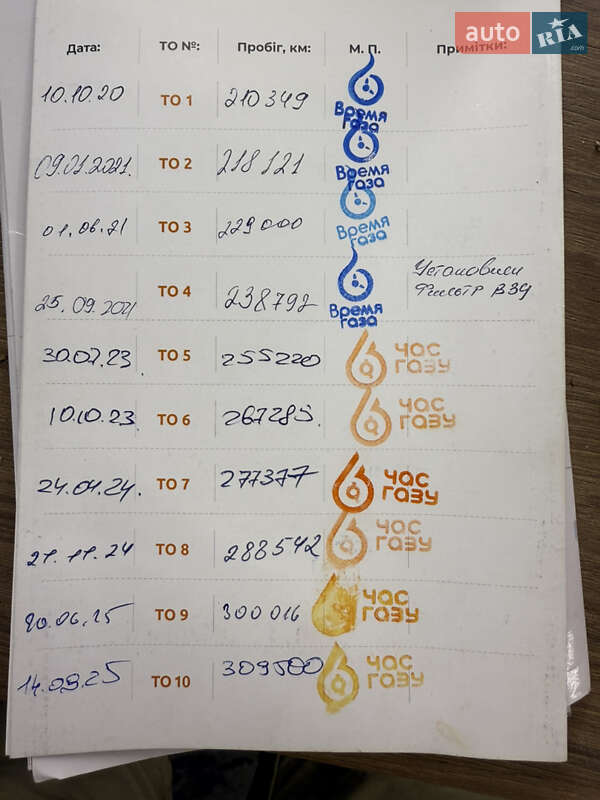 auto RIA .com
Дата: ТО №: Пробіг, км: М. П. Примітки:
10.10.20 ТО 1 210349 Время Газа
09.01.2021. ТО 2 218121 Время Газа
01.06.21 ТО 3 229000 Время Газа
25.09.2021 ТО 4 238792 Время Газа Установили Фильтр ВЗД
30.07.23 ТО 5 255220 ЧАС ГАЗУ
10.10.23 ТО 6 267285. ЧАС ГАЗУ
24.04.24. ТО 7 277377 ЧАС ГАЗУ
21.11.24 ТО 8 288542 ЧАС ГАЗУ
20.06.25 ТО 9 300016 ЧАС ГАЗУ
14.09.25 ТО 10 309500 ЧАС ГАЗУ